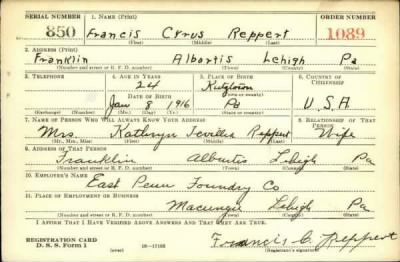 SERIAL NUMBER 1. NAME (Print) ORDER NUMBER
850 Francis Cyrus Reppert 1089
(First) (Middle) (Last)
2. ADDRESS (Print)
Franklin Alburtis Lehigh Pa
(Number and street or R. F. D. number) (Town) (County) (State)
3. TELEPHONE 4. AGE IN YEARS 5. PLACE OF BIRTH 6. COUNTRY OF CITIZENSHIP
24 Kutztown
DATE OF BIRTH (Town or county)
Jan 8 1916 Pa U.S.A
(Exchange) (Number) (Mo.) (Day) (Yr.) (State or country)
7. NAME OF PERSON WHO WILL ALWAYS KNOW YOUR ADDRESS 8. RELATIONSHIP OF THAT PERSON
Mrs. Kathryn Reppert Wife
(Mr., Mrs., Miss) (First) (Middle) (Last)
9. ADDRESS OF THAT PERSON
Franklin Alburtis Lehigh Pa
(Number and street or R. F. D. number) (Town) (County) (State)
10. EMPLOYER'S NAME
East Penn Foundry Co
11. PLACE OF EMPLOYMENT OR BUSINESS
Macungie Lehigh Pa
(Number and street or R. F. D. number) (Town) (County) (State)
I AFFIRM THAT I HAVE VERIFIED ABOVE ANSWERS AND THAT THEY ARE TRUE.
REGISTRATION CARD
D. S. S. Form 1 (over) Francis C. Reppert
(Registrant's signature)